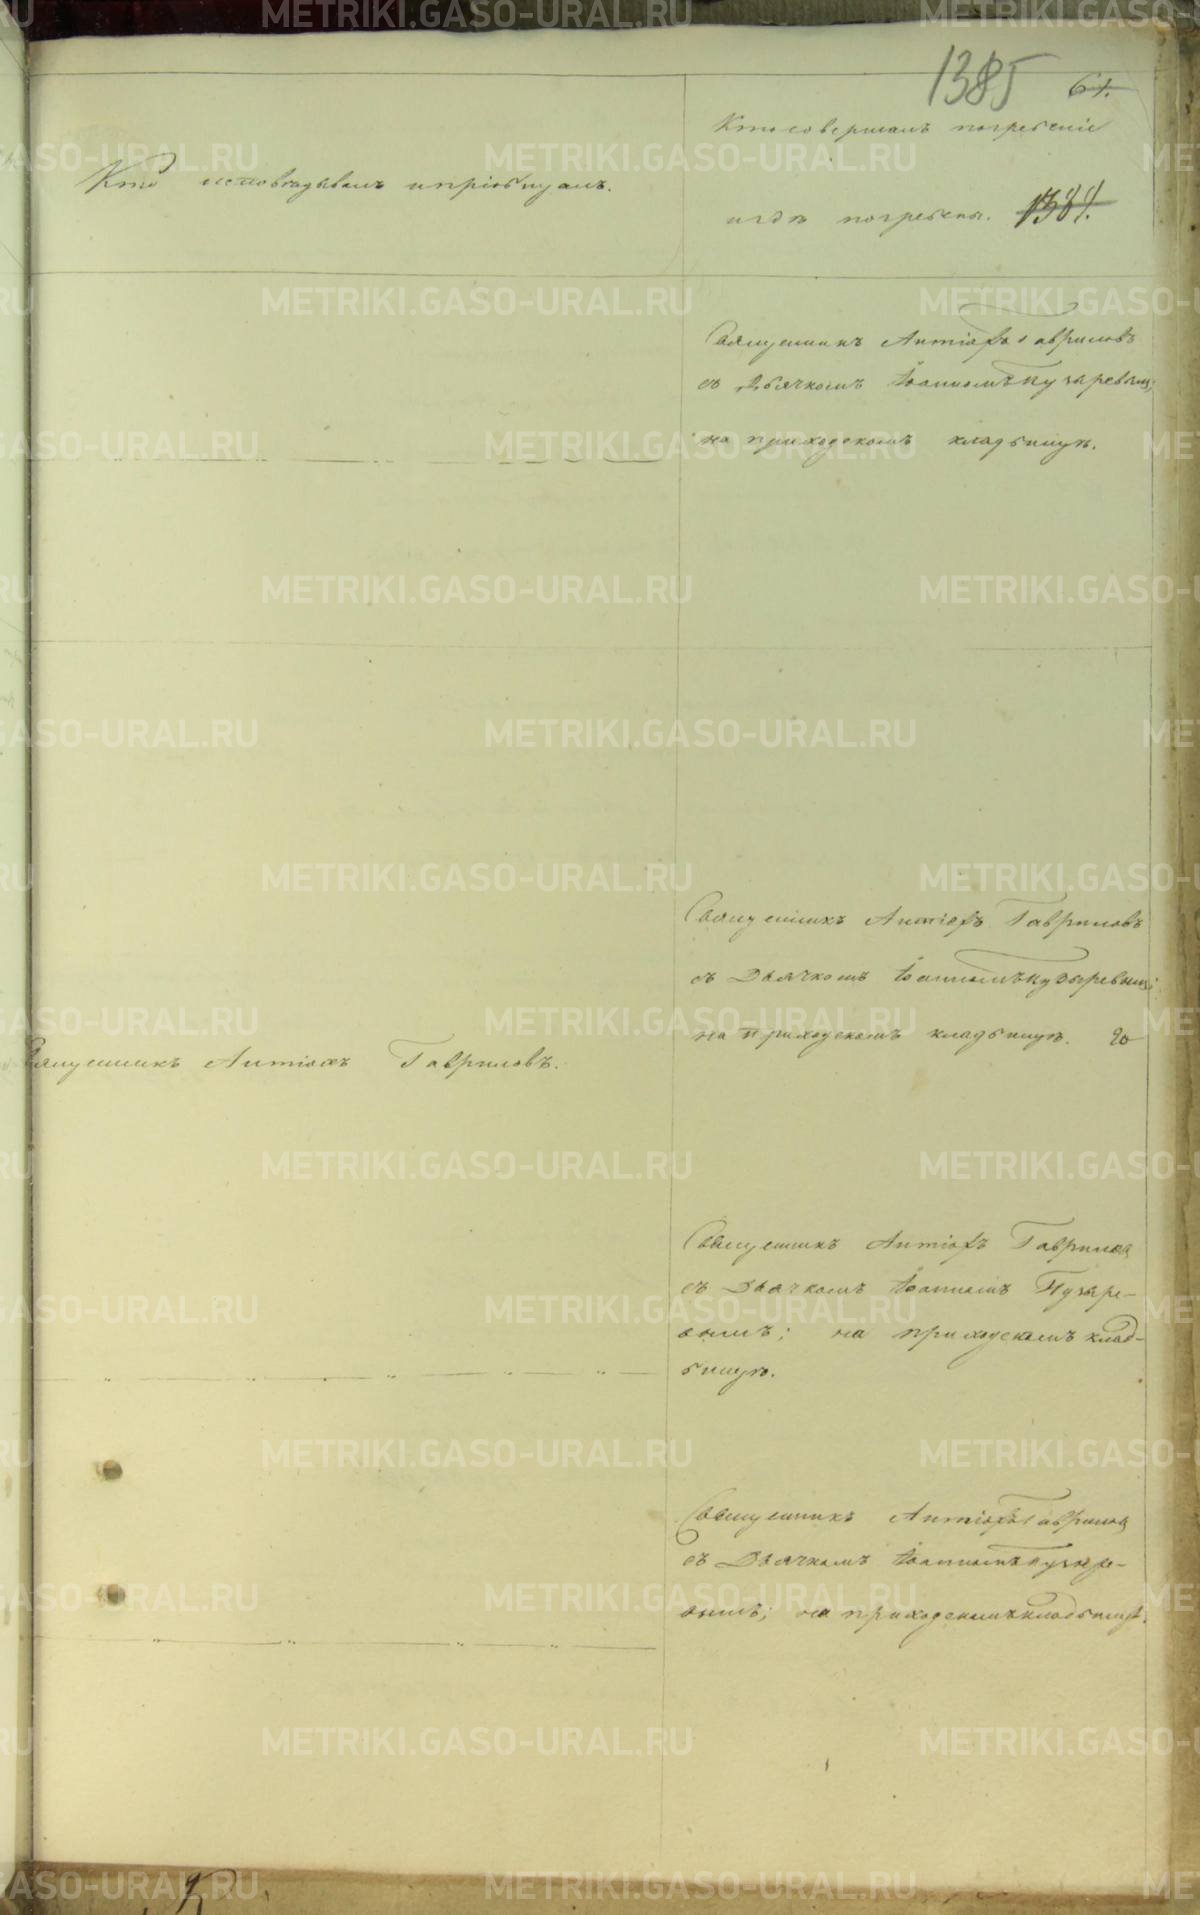 1385 61.
Кто исповѣдывалъ и пріобщалъ.
Кто совершалъ погребеніе
и гдѣ погребены. 1384.
Священникъ Антіохъ Гавриловъ
съ Дьячкомъ Іоанномъ Пузыревымъ;
на приходскомъ кладбищѣ.
Священникъ Антіохъ Гавриловъ.
Священникъ Антіохъ Гавриловъ
съ Дьячкомъ Іоанномъ Пузыревымъ;
на приходскомъ кладбищѣ.
Священникъ Антіохъ Гавриловъ
съ Дьячкомъ Іоанномъ Пузыре-
вымъ; на приходскомъ клад-
бищѣ.
Священникъ Антіохъ Гавриловъ
съ Дьячкомъ Іоанномъ Пузыре-
вымъ; на приходскомъ кладбищѣ.
METRIKI.GASO-URAL.RU